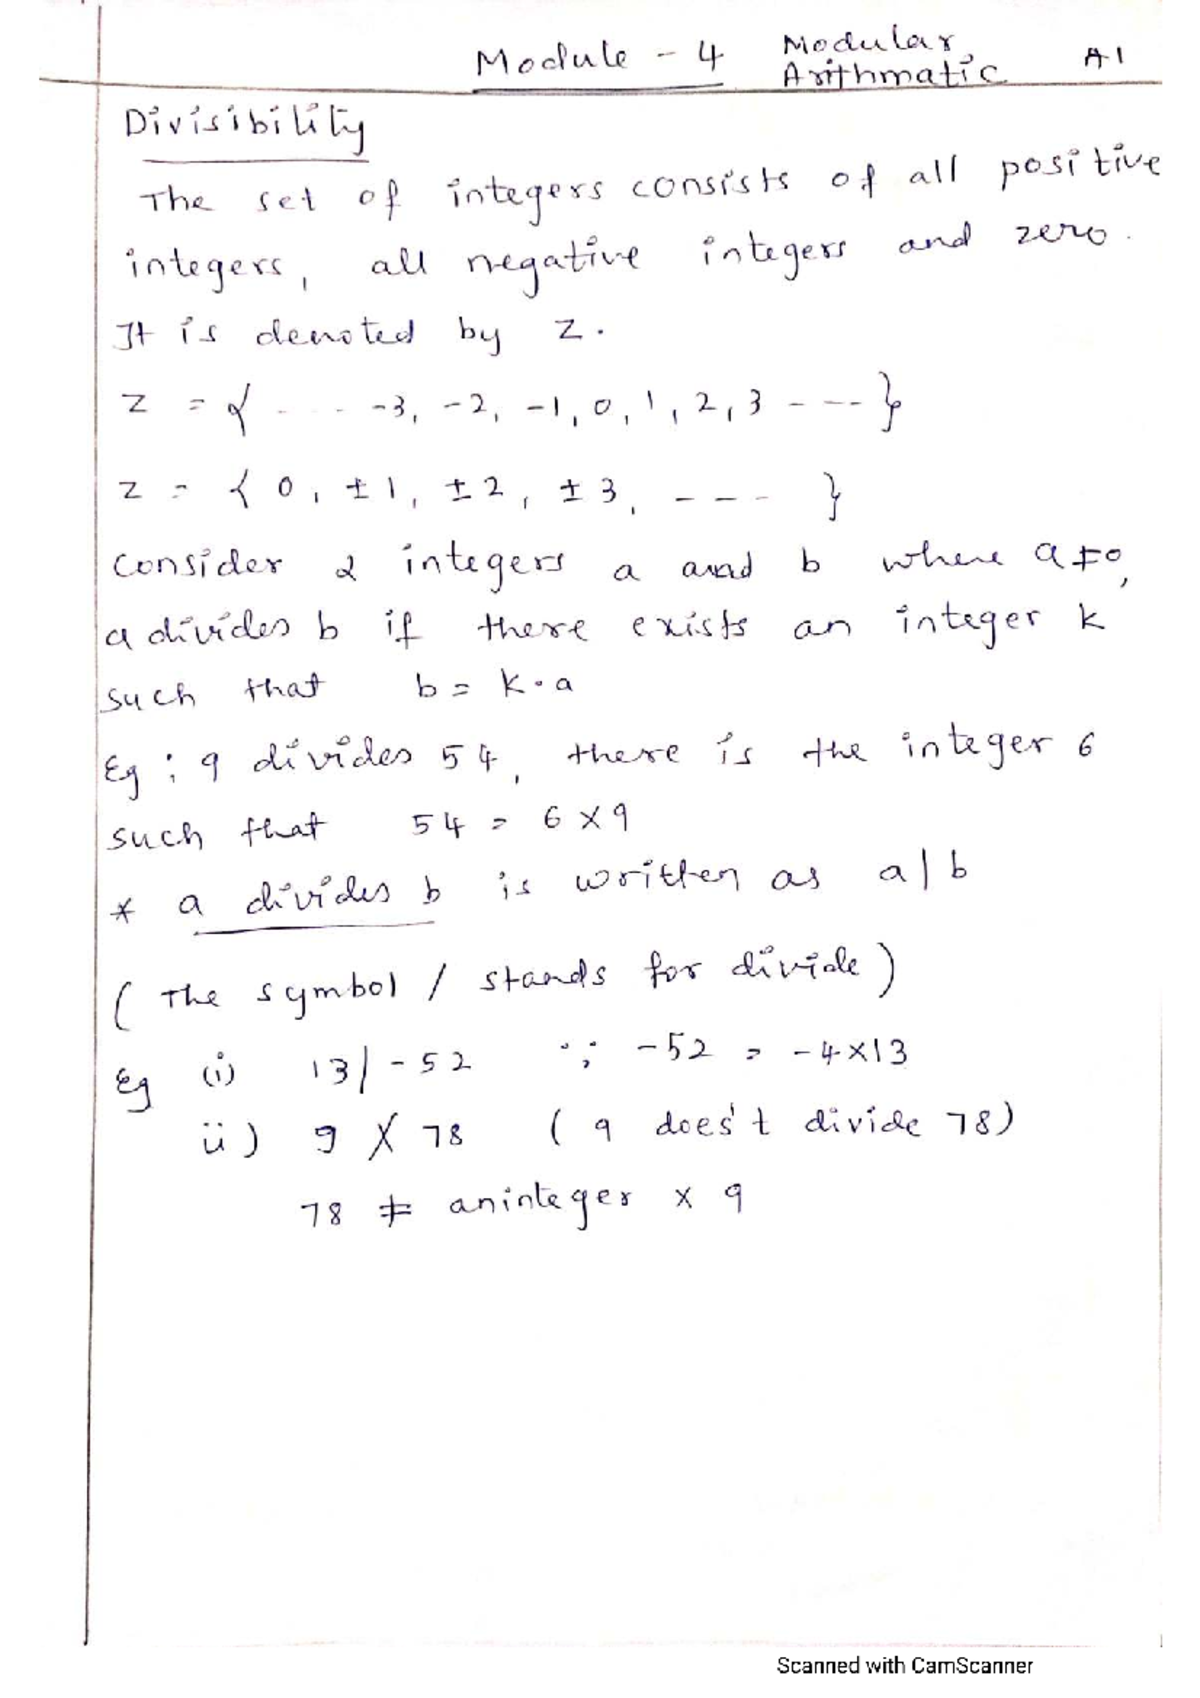 Module - 4 Modular Arithmatic A1
Divisibility
The set of integers consists of all positive
integers, all negative integers and zero.
It is denoted by Z.
Z = { - - - -3, -2, -1, 0, 1, 2, 3 - - - }
Z = { 0, ±1, ±2, ±3, - - - }
Consider 2 integers a and b where a ≠ 0,
a divides b if there exists an integer k
such that b = k·a
Eg : 9 divides 54, there is the integer 6
such that 54 = 6 × 9
* a divides b is written as a | b
( The symbol / stands for divide )
Eg (i) 13 | -52 ∵ -52 = -4×13
ii) 9 ∤ 78 ( 9 does't divide 78 )
78 ≠ aninteger × 9
Scanned with CamScanner